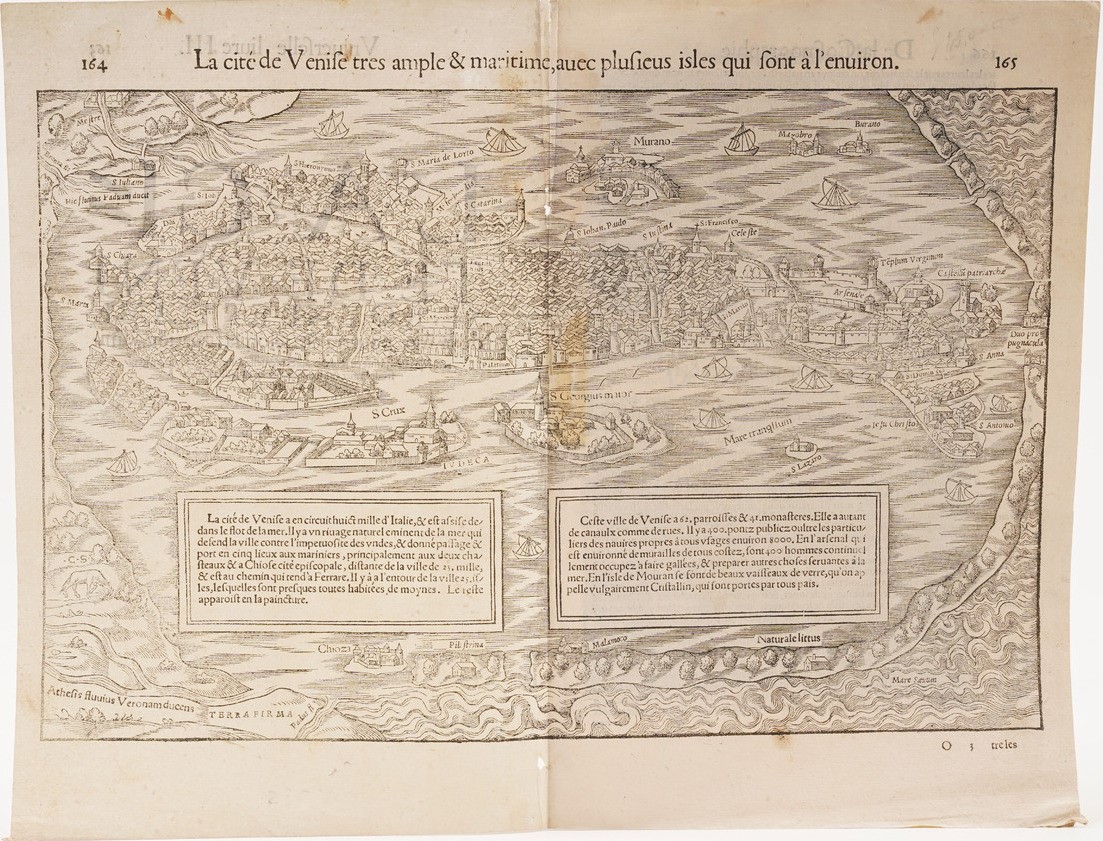 164
La cité de Veniſe tres ample & maritime, auec pluſieus isles qui ſont à l'enuiron.
165
Meſtre
S. Iuliano
Hic fluuius Paduam ducit
S. Iob
S. Hieronimus
S. Maria de Lorto
S. Catarina
Murano
Mazobro
Burano
S. Chiara
S. Marta
S. Iohan. Paulo
S. Iuſtina
S. Franciſco
Celeſte
Tēplum Virginum
Caſtellū patriarchæ
Arſenale
Palatium
Duo pro
pugnacula
S. Anna
S. Domini
Ieſu Chriſto
S. Antonio
S. Crux
S. Georgius maior
Mare tranquilium
S. Lazaro
IVDECA
La cité de Veniſe a en circuit huict mille d'Italie, & eſt aſsiſe de/
dans le flot de la mer. Il y a vn riuage naturel eminent de la mer qui
defend la ville contre l'impetuoſite des vndes, & donne paſſage &
port en cinq lieux aux mariniers, principalement aux deux cha/
ſteaux & a Chioſe cité epiſcopale, diſtante de la ville de 25. mille,
& eſt au chemin qui tend à Ferrare. Il y à a l'entour de la ville 25. iſ/
les, leſquelles ſont preſques toutes habitées de moynes. Le reſte
apparoiſt en la paincture.
Ceſte ville de Veniſe a 62. parroiſſes & 41. monaſteres. Elle a autant
de canaulx comme de rues. Il y a 400. pontz publicz oultre les particu/
liers des nauires propres à tous vſages enuiron 8000. En l'arſenal qui
eſt enuironné de murailles de tous coſtez, ſont 400 hommes continuel
lement occupez à faire gallées, & preparer autres choſes ſeruantes à la
mer. En l'iſle de Mouran ſe font de beaux vaiſſeaux de verre, qu'on ap
pelle vulgairement Criſtallin, qui ſont portes par tous pais.
Chioza
Pileſtrina
Malamoco
Naturale littus
Mare ſæuum
Atheſis fluuius Veronam ducens
TERRA FIRMA
O 3 tre les